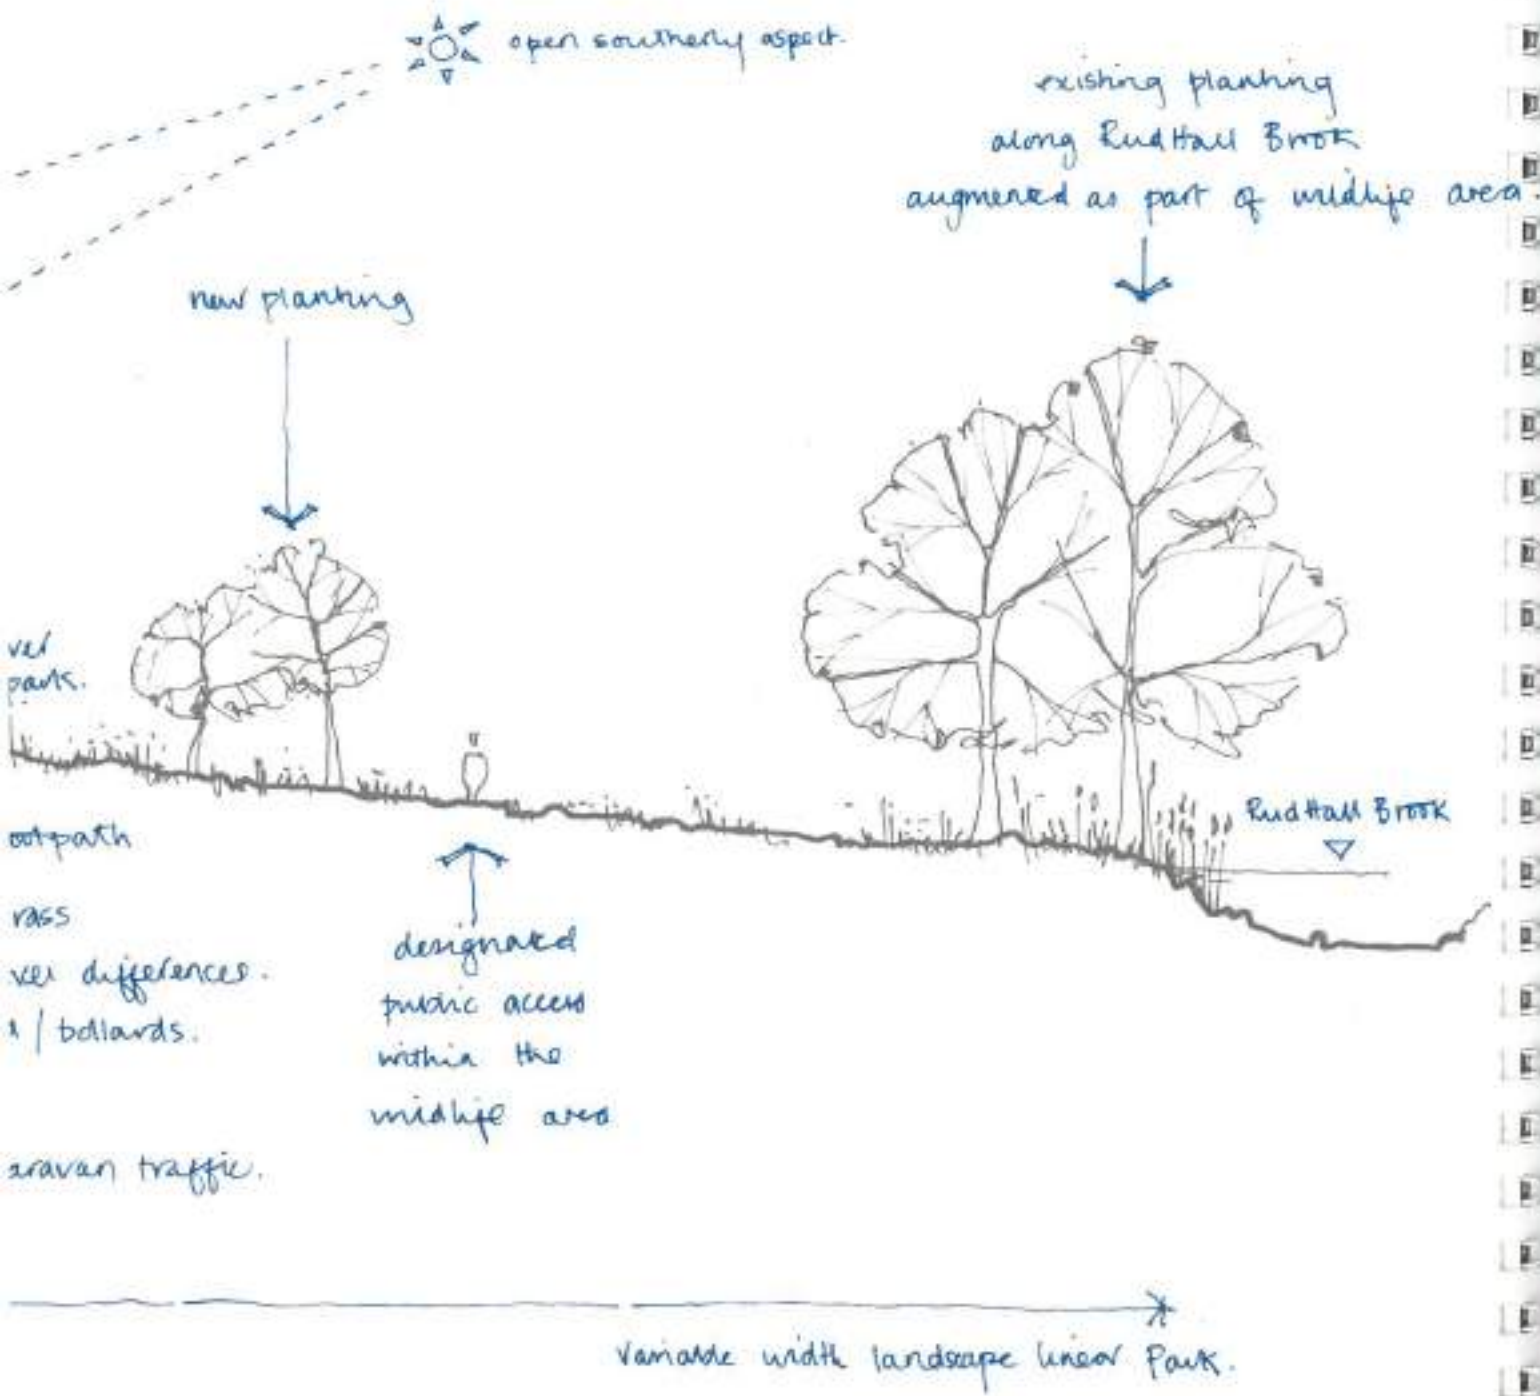 open southerly aspect.
existing planting
along Rudhall Brook
augmented as part of wildlife area.
new planting
ver
park.
ootpath
rass
vel differences.
/ bollards.
aravan traffic.
designated
public access
within the
wildlife area
Rudhall Brook
variable width landscape linear Park.